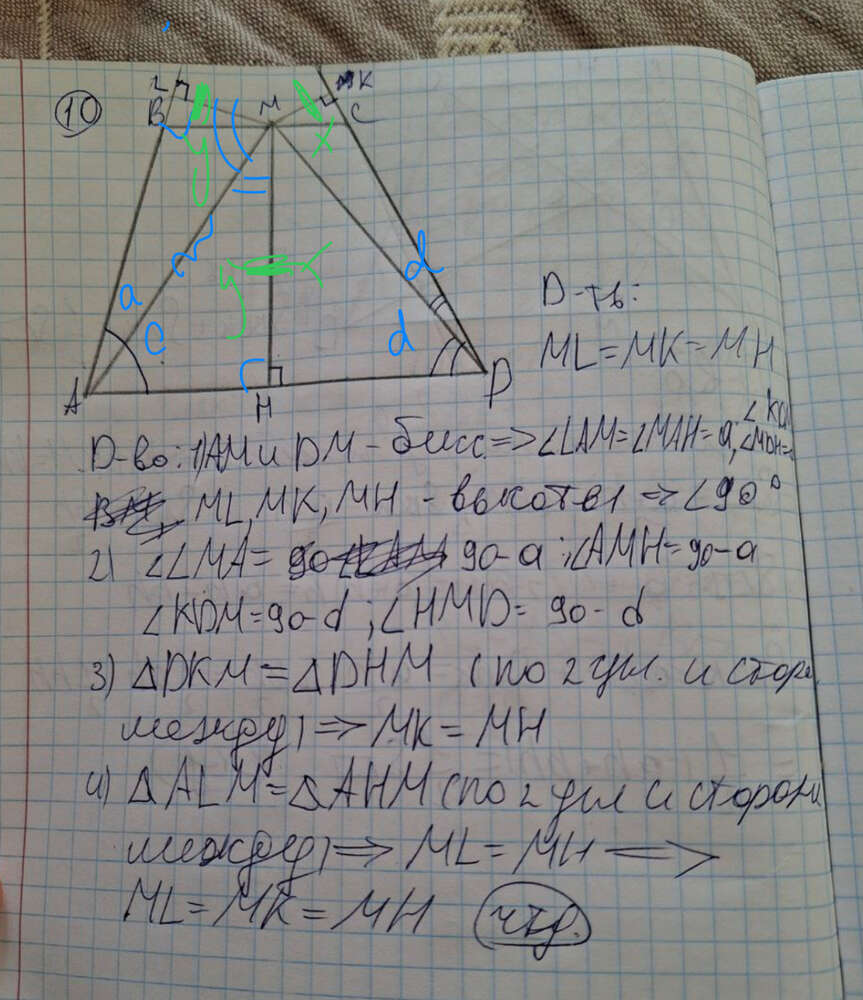 10
L M K
B C
y x
a c d d
A H D
Д-ть:
ML = MK = MH
Д-во: 1) AM и DM - бисс => ∠LAM = ∠MAH = a,
ML, MK, MH - высоты => ∠90°
2) ∠LMA = 90-a; ∠AMH = 90-a
∠KDM = 90-d; ∠HMD = 90-d
3) ΔDKM = ΔDHM (по 2 угл. и стор
между) => MK = MH
4) ΔALM = ΔAHM (по 2 угл и сторони
между) => ML = MH =>
ML = MK = MH чтд.